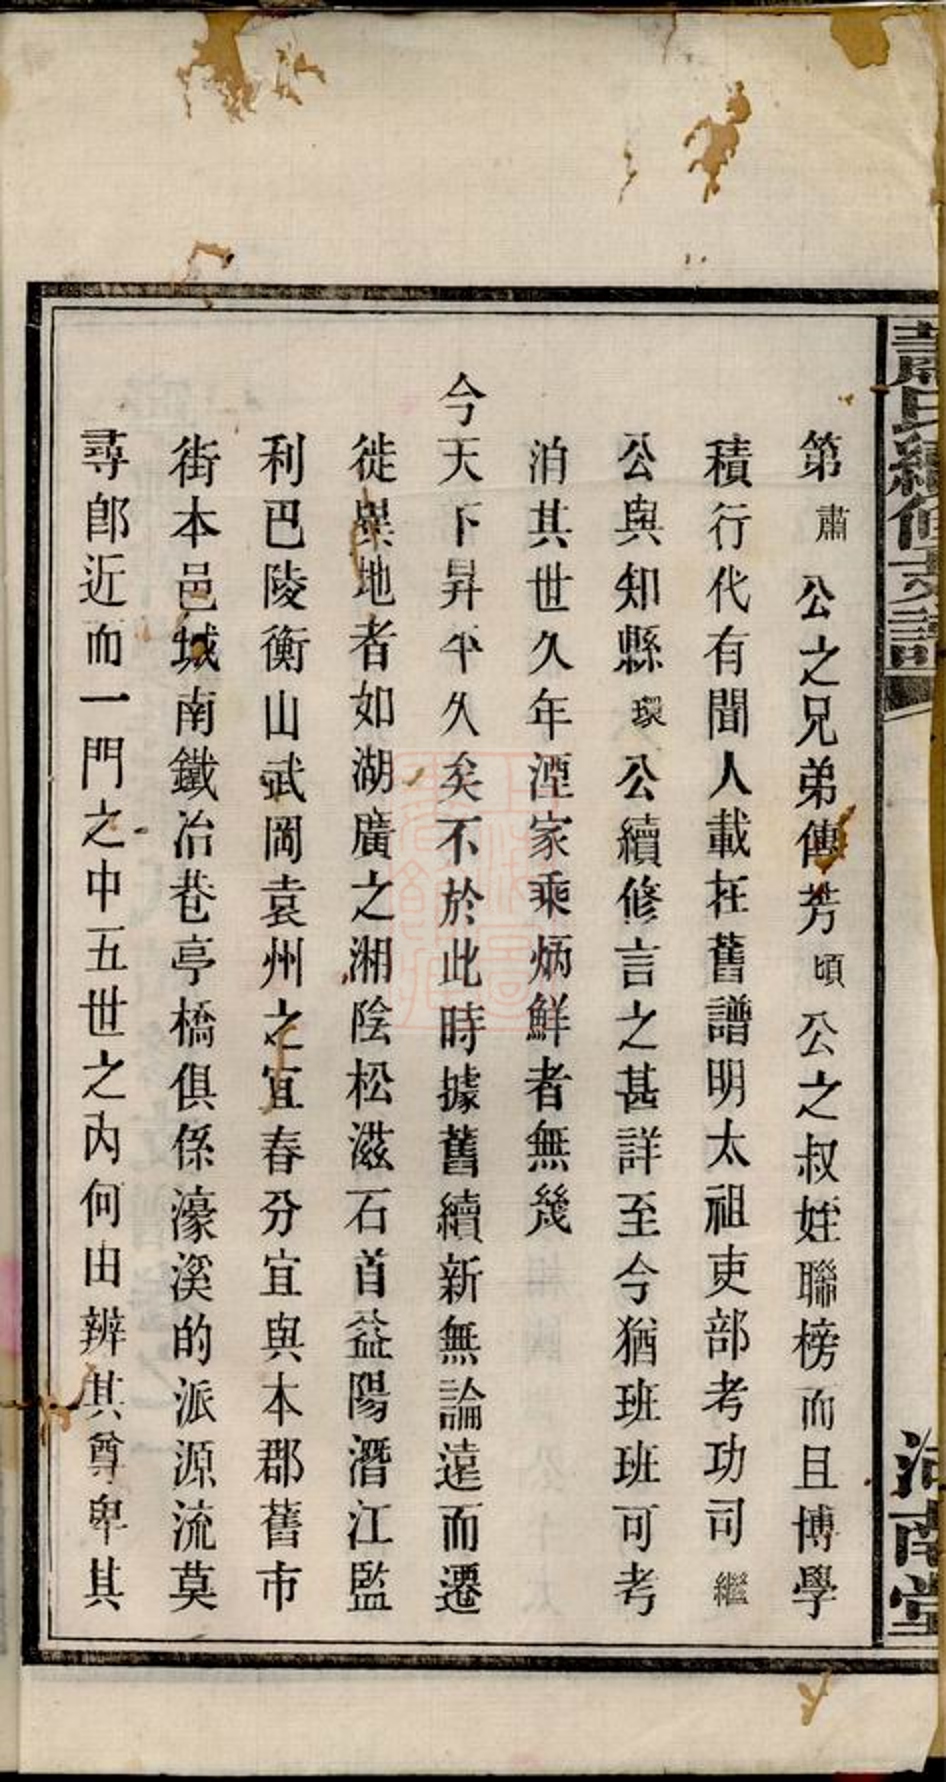 第肅公之兄弟傳芳頃公之叔姪聯榜而且博學
積行代有聞人載在舊譜明太祖吏部考功司繼
公與知縣環公續修言之甚詳至今猶班班可考
洎其世久年湮家乘炳鮮者無幾
今天下昇平久矣不於此時據舊續新無論遠而遷
徙異地者如湖廣之湘陰松滋石首益陽潛江監
利巴陵衡山武岡袁州之宜春分宜與本郡舊市
街本邑城南鐵冶巷亭橋俱係濠溪的派源流莫
尋即近而一門之中五世之內何由辨其尊卑其